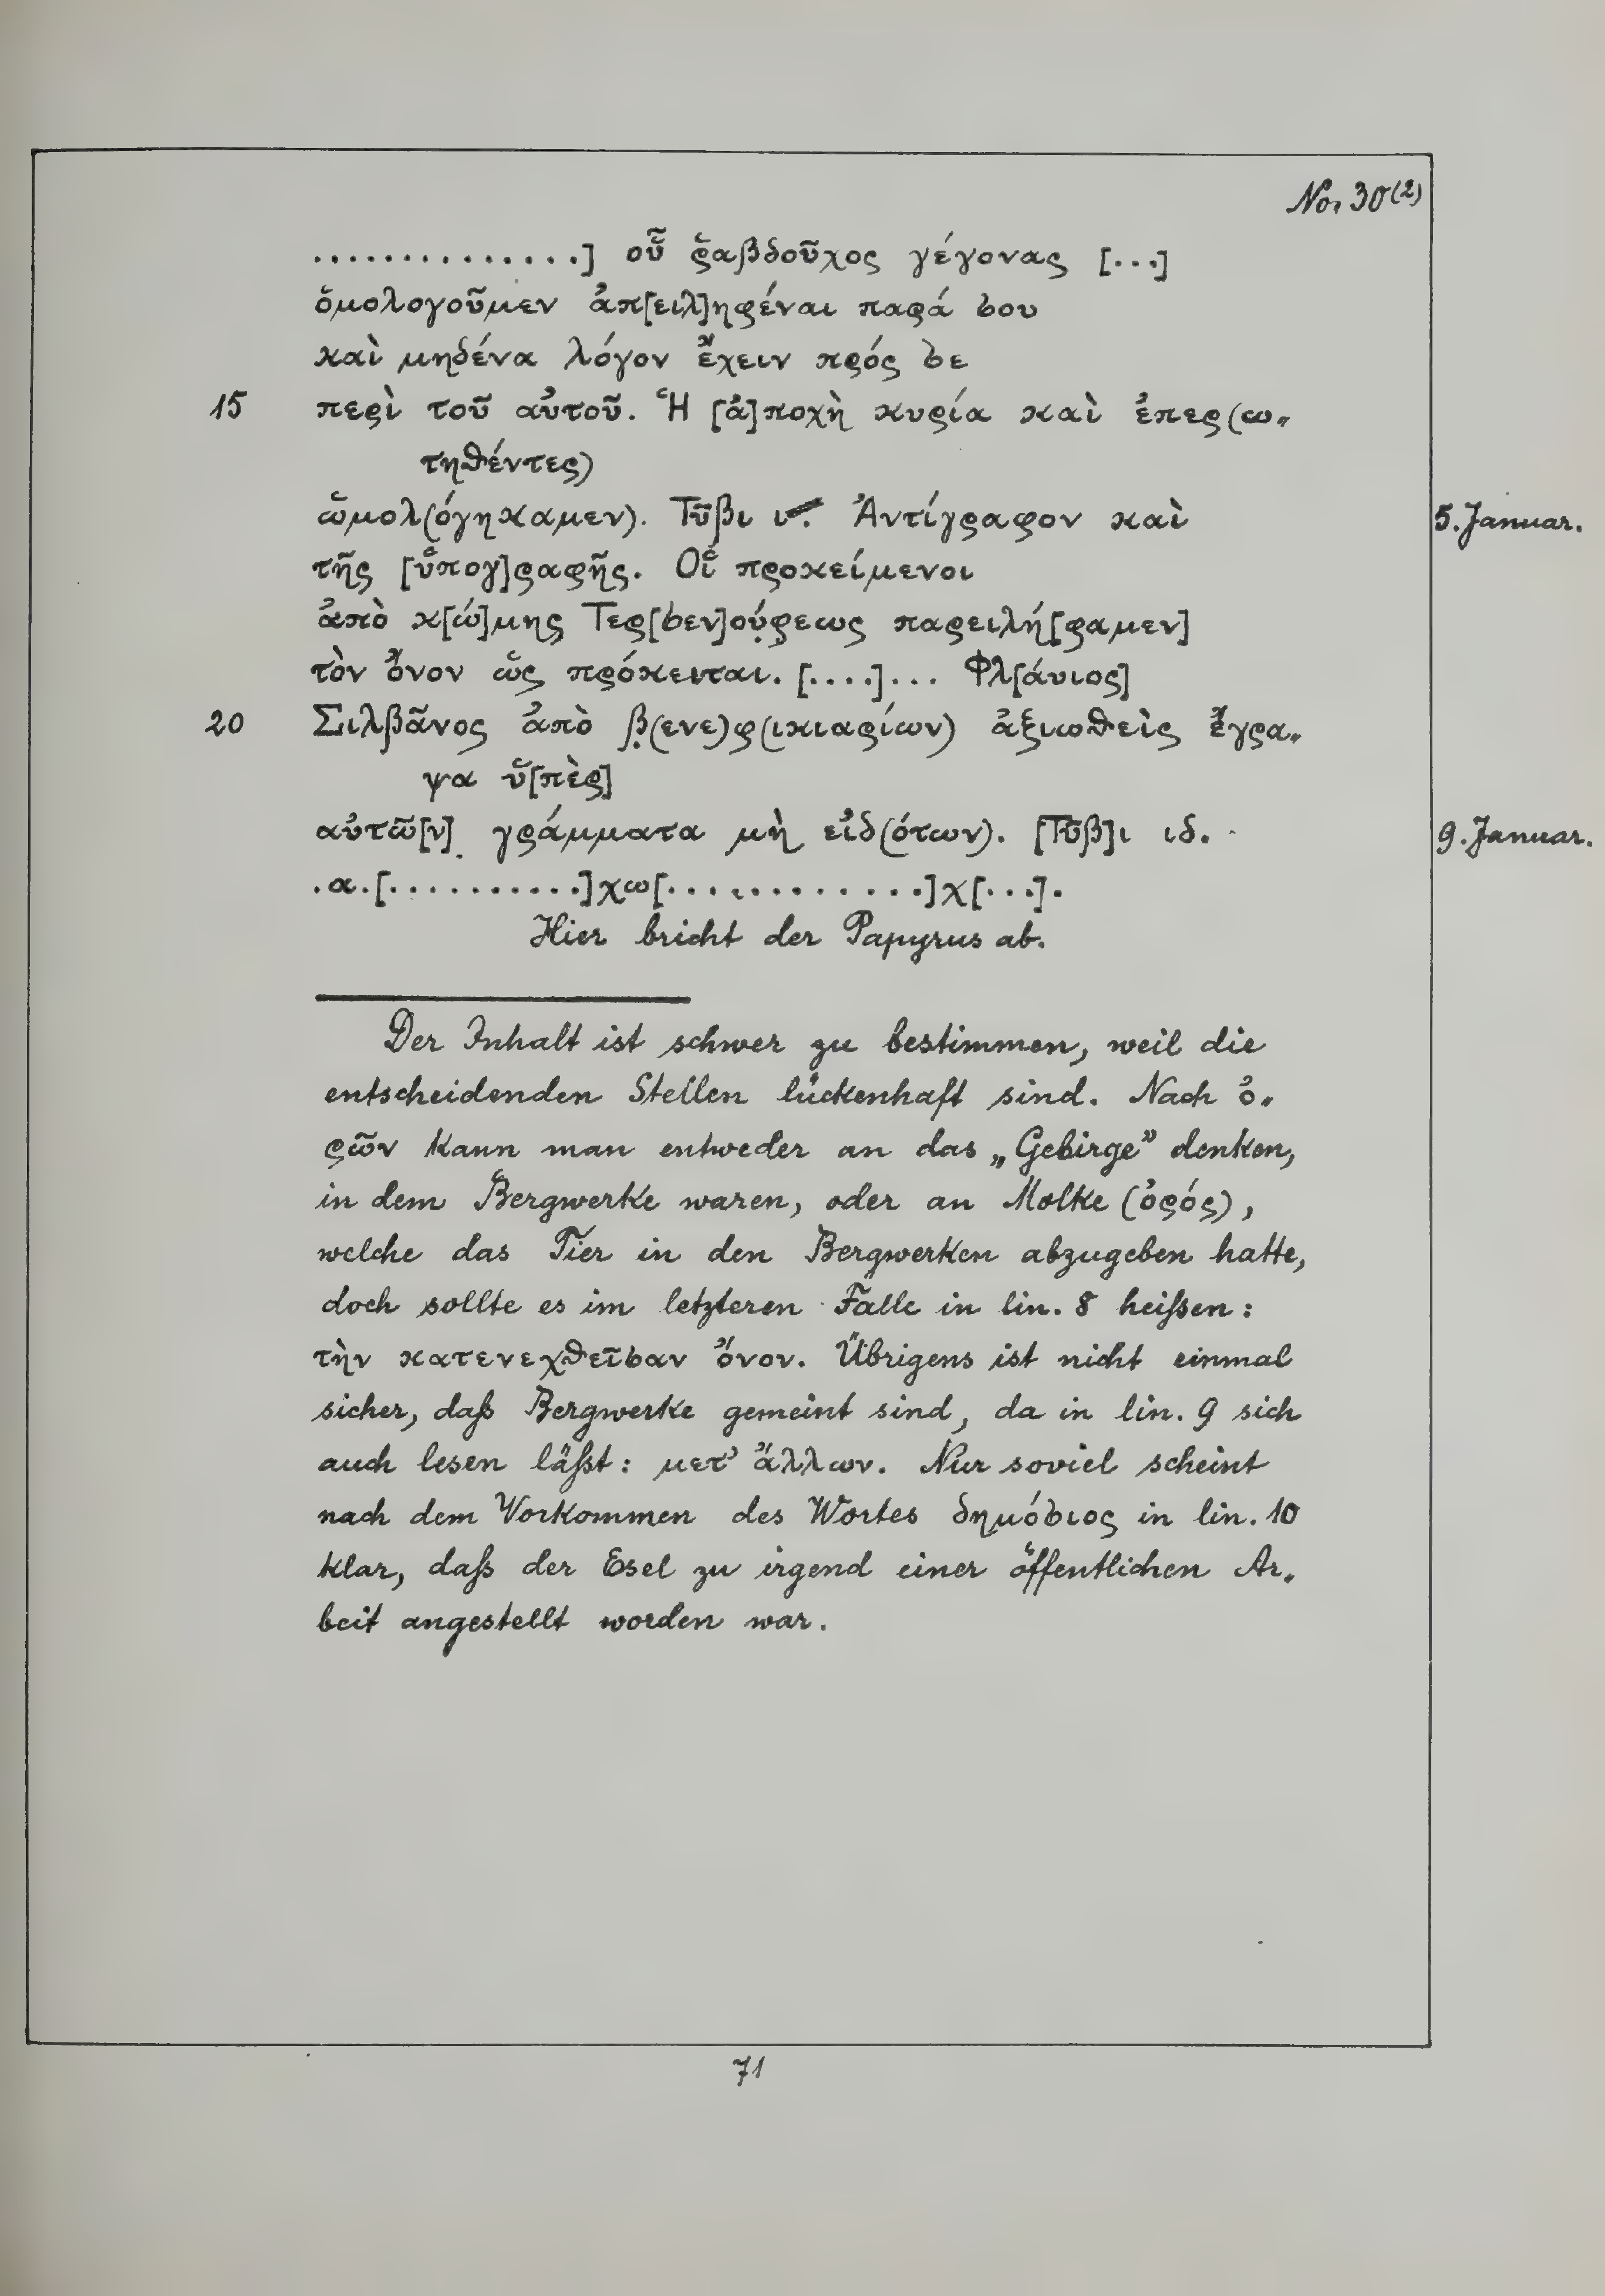 No. 30(2)
..............] οὗ ῥαβδοῦχος γέγονας [...]
ὁμολογοῦμεν ἀπ[ειλ]ηφέναι παρά σου
καὶ μηδένα λόγον ἔχειν πρός σε
15 περὶ τοῦ αὐτοῦ. Ἡ [ἀ]ποχὴ κυρία καὶ ἐπερ(ω„
τηθέντες)
ὡμολ(όγηκαμεν). Τῦβι ι. Ἀντίγραφον καὶ 5. Januar.
τῆς [ὑπογ]ραφῆς. Οἱ προκείμενοι
ἀπὸ κ[ώ]μης Τερ[σεν]ούφεως παρειλή[φαμεν]
τὸν ὄνον ὡς πρόκειται. [....]... Φλ[άυιος]
20 Σιλβᾶνος ἀπὸ β̣(ενε)φ(ικιαρίων) ἀξιωθεὶς ἔγρα„
ψα ὑ[πὲρ]
αὐτῶ[ν] γράμματα μὴ εἰδ(ότων). [Τῦβ]ι ιδ. 9. Januar.
.α.[..........]χω[.............]χ[...].
Hier bricht der Papyrus ab.
Der Inhalt ist schwer zu bestimmen, weil die
entscheidenden Stellen lückenhaft sind. Nach ὀ„
ρῶν kann man entweder an das „Gebirge” denken,
in dem Bergwerke waren, oder an Molke (ὀρός),
welche das Tier in den Bergwerken abzugeben hatte,
doch sollte es im letzteren Falle in lin. 8 heißen:
τὴν κατενεχθεῖσαν ὄνον. Übrigens ist nicht einmal
sicher, daß Bergwerke gemeint sind, da in lin. 9 sich
auch lesen läßt: μετ’ ἄλλων. Nur soviel scheint
nach dem Vorkommen des Wortes δημόσιος in lin. 10
klar, daß der Esel zu irgend einer öffentlichen Ar„
beit angestellt worden war.
71